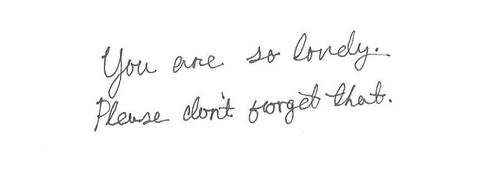 You are so lovely.
Please don't forget that.